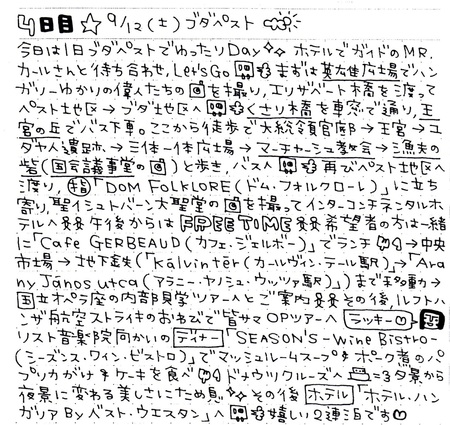 4日目 ☆ 9/12(土) ブダペスト
今日は1日ブダペストでゆったりDay ホテルでガイドのMR.
カールさんと待ち合わせ, Let's Go まずは英雄広場でハン
ガリーゆかりの偉人たちの を撮り, エリザベート橋を渡って
ペスト地区→ブダ地区へ くさり橋を車窓で通り, 王
宮の丘でバス下車。ここから徒歩で大統領官邸→王宮→ユ
ダヤ人遺跡→三体一体広場→マーチャーシュ教会→漁夫の
砦(国会議事堂の )と歩き, バスへ 再びペスト地区へ
渡り, 「DOM FOLKLORE(ドム・フォルクローレ)」に立ち
寄り, 聖イシュトバーン大聖堂の を撮ってインターコンチネンタルホ
テルへ 午後からは FREE TIME 希望者の方は一緒
に「Cafe GERBEAUD(カフェ・ジェルボー)」でランチ →中央
市場→地下鉄(「Kálvintér(カールヴィン・テール駅)→「Ara
ny János utca(アラニー・ヤノシュ・ウッツァ駅)」)まで移動→
国立オペラ座の内部見学ツアーへとご案内 その後, ルフトハ
ンザ航空ストライキのおかげで皆サマOPツアーへ ラッキー♡
リスト音楽院向かいの ディナー 「SEASON'S -Wine Bistro-
(シーズンス・ワイン・ビストロ)」でマッシュルームスープ ポーク煮のパ
プリカがけ ケーキを食べ ドナウクルーズへ 夕景から
夜景に変わる美しさにため息 その後 ホテル 「ホテル・ハン
ガリア By ベスト・ウエスタン」へ 嬉しい2連泊です♡